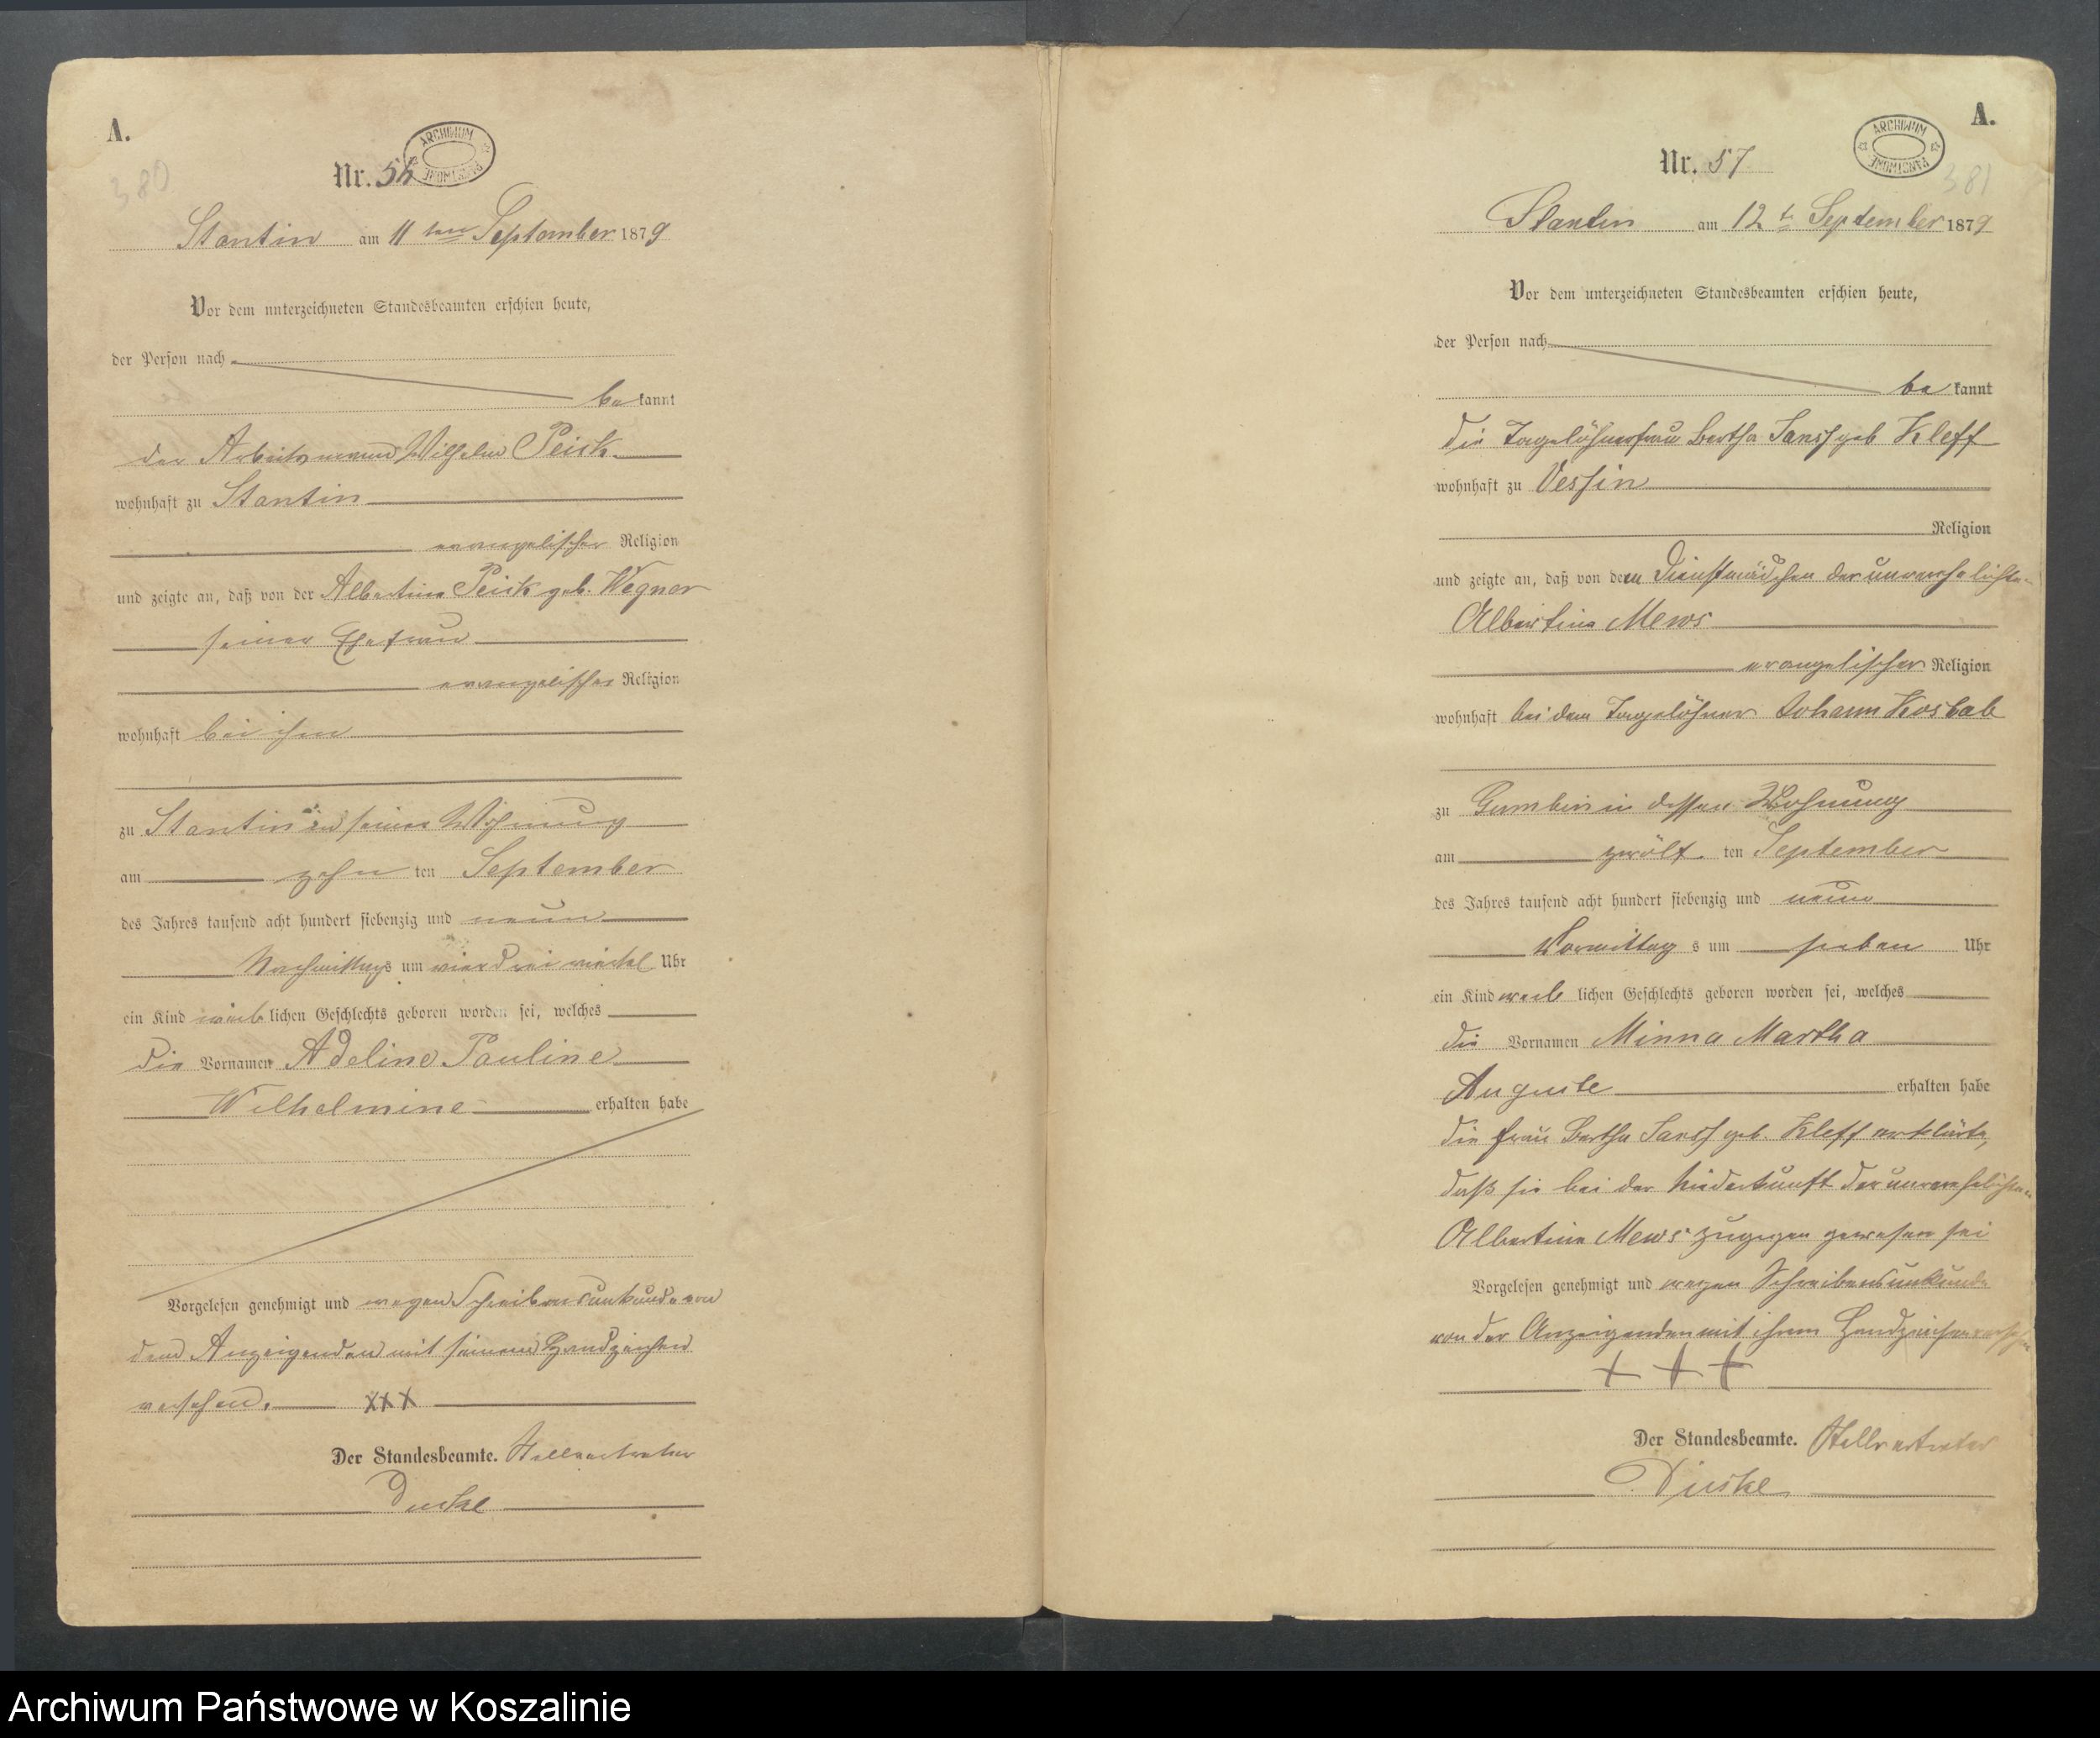 A.
380
ARCHIWUM PAŃSTWOWE
Nr. 56
Stantin am 11ten September 1879
Vor dem unterzeichneten Standesbeamten erschien heute,
der Person nach
bekannt
der Arbeitsmann Wilhelm Peick
wohnhaft zu Stantin
evangelischer Religion
und zeigte an, daß von der Albertine Peick geb. Wegner
seiner Ehefrau
evangelischer Religion
wohnhaft bei ihm
zu Stantin in seiner Wohnung
am zehn ten September
des Jahres tausend acht hundert siebenzig und neun
Nachmittags um vier drei viertel Uhr
ein Kind weiblichen Geschlechts geboren worden sei, welches
die Vornamen Adeline Pauline
Wilhelmine erhalten habe
Vorgelesen genehmigt und wegen Schreibensunkunde von
dem Anzeigenden mit seinem Handzeichen
versehen. XXX
Der Standesbeamte. Stellvertreter
A.
381
ARCHIWUM PAŃSTWOWE
Nr. 57
Stantin am 12t September 1879
Vor dem unterzeichneten Standesbeamten erschien heute,
der Person nach
bekannt
die Tagelöhnerfrau Bertha geb Kleff
wohnhaft zu Vessin
Religion
und zeigte an, daß von dem Dienstmädchen der unverehelichten
Albertine Mews
evangelischer Religion
wohnhaft bei dem Tagelöhner Johann Kosbab
zu Gumbin in dessen Wohnung
am zwölf ten September
des Jahres tausend acht hundert siebenzig und neun
Vormittags um sieben Uhr
ein Kind weiblichen Geschlechts geboren worden sei, welches
die Vornamen Minna Martha
Auguste erhalten habe
die Frau Bertha geb. Kleff erklärte,
daß sie bei der Niederkunft der unverehelichten
Albertine Mews zugegen gewesen sei
Vorgelesen genehmigt und wegen Schreibensunkunde
von der Anzeigenden mit ihrem Handzeichen versehen
+ + +
Der Standesbeamte. Stellvertreter
Archiwum Państwowe w Koszalinie